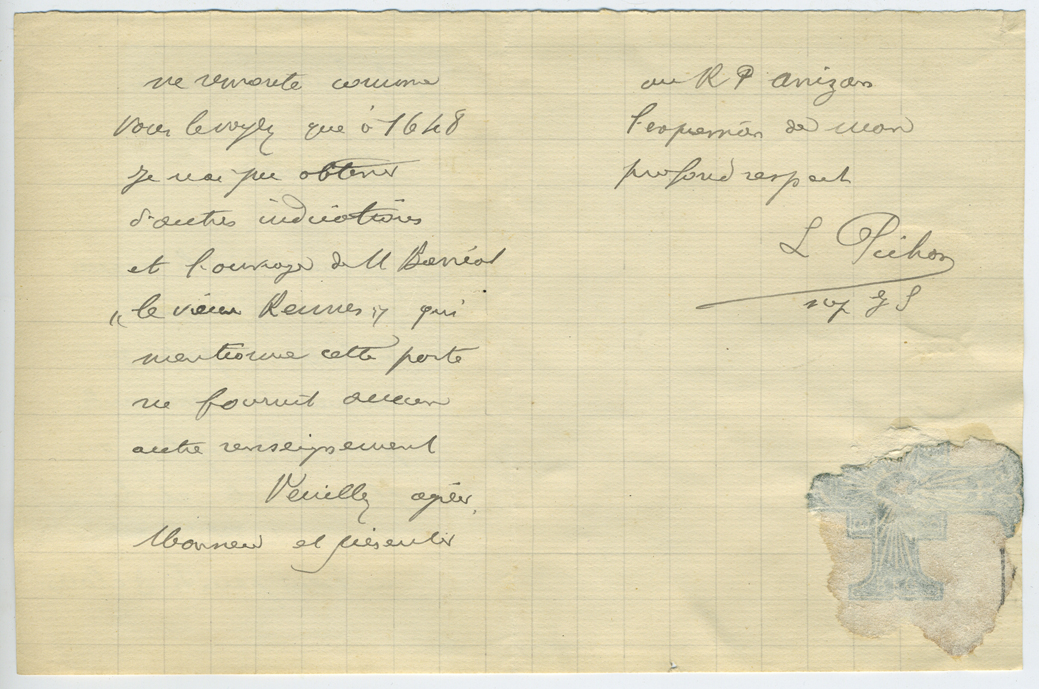 ne remonte comme
vous le voyez que à 1648
Je n'ai pu obtenir
d'autres indications
et l'ouvrage de M
"le vieux Rennes" qui
mentionne cette porte
ne fournit aucun
autre renseignement
Veuillez agréer,
Monsieur et présenter
au R P Anizan
l'expression de mon
profond respect
L Pichon